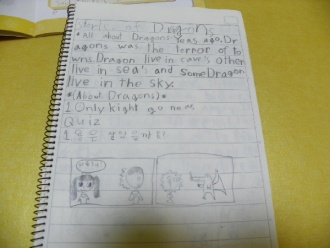 of Dragons
*All about Dragons Years ago.Dr
agons was the terror of to
wns.Dragon live in cave's other
live in sea's and some Dragon
live in the sky.
*(About Dragons)*
1 Only
Quiz
1.용은